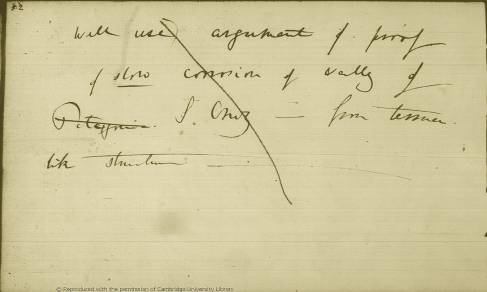 Will use argument of proof
of slow corrosion of valley of
Patagonia. S. Cruz — from
like structure
© Reproduced with the permission of Cambridge University Library